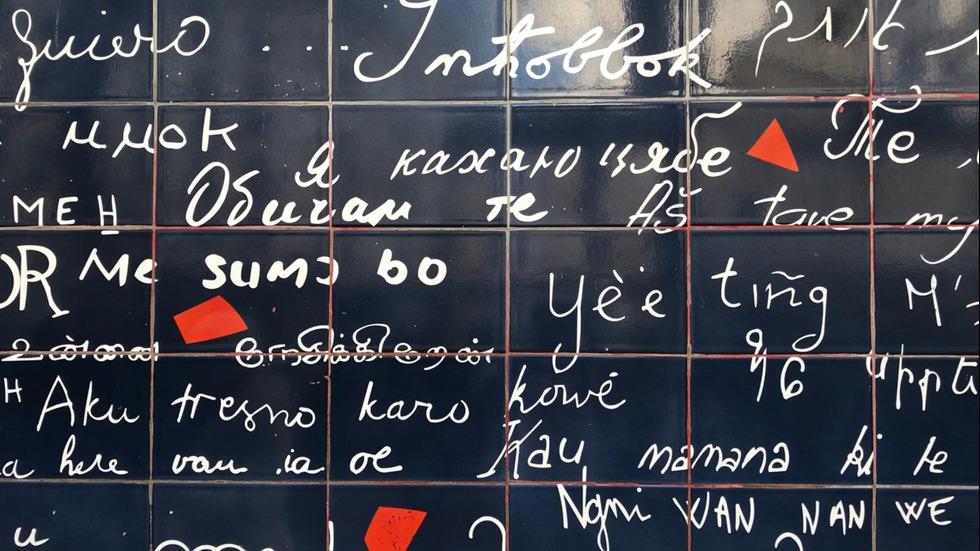 quiero ....
Inħobbok
Я кахаю цябе
Те
МЕН
Обичам те
Aš tave my
OR Me sumɔ bo
Yèe tiñg M'
Aku tresno karo kowé
a here vau ia oe
Kau mamana ki te
WAN NAN WE